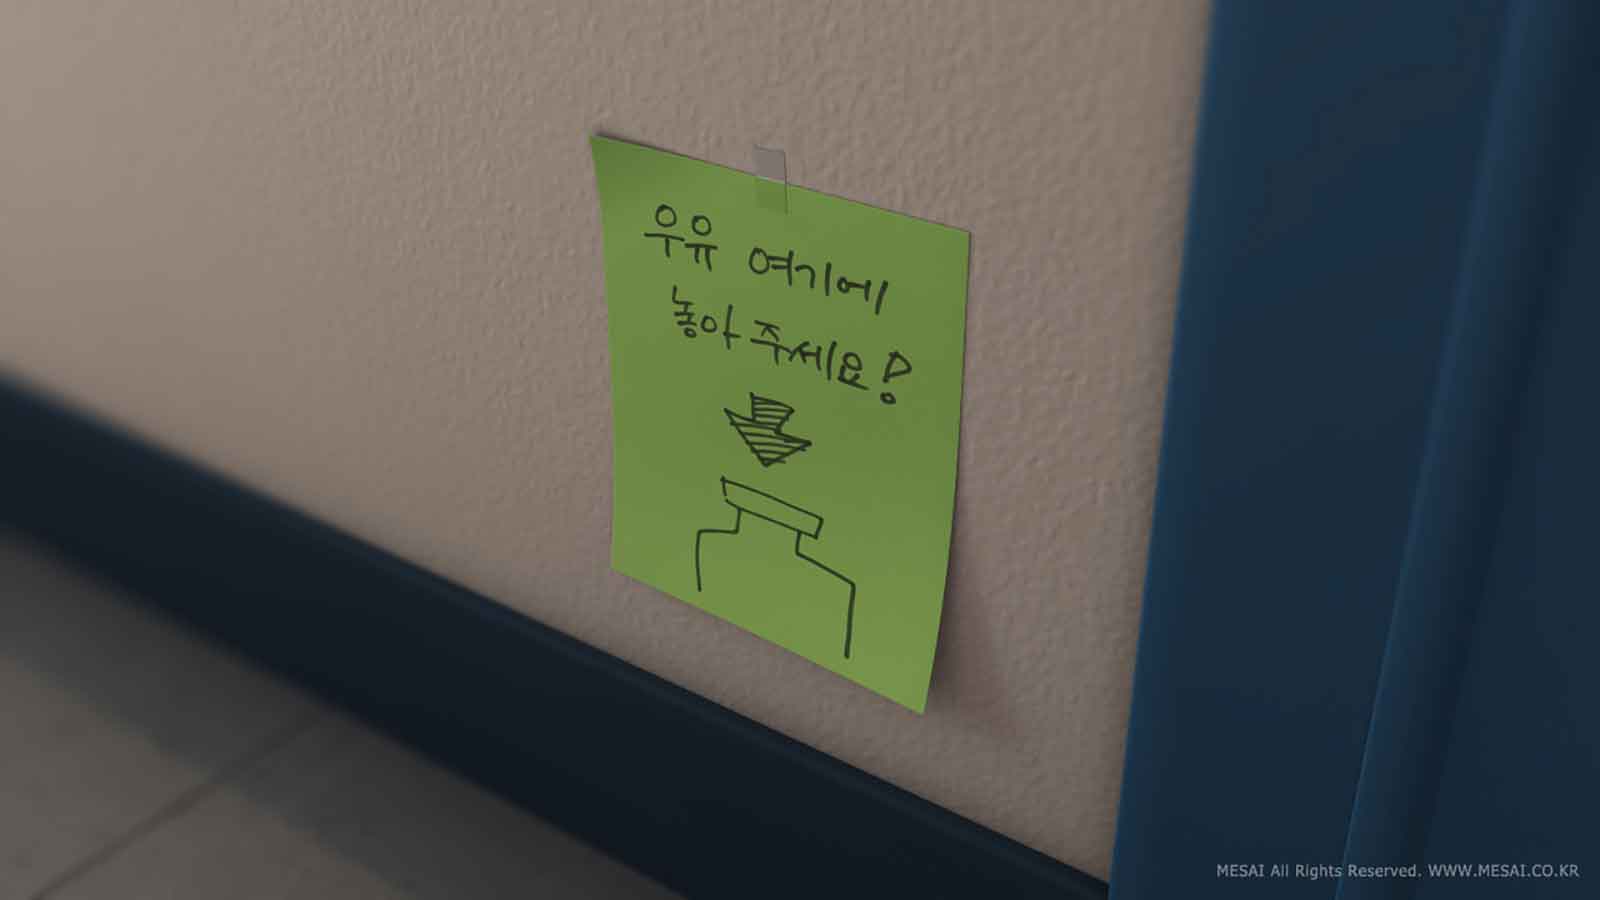 우유 여기에
놓아 주세요!
MESAI All Rights Reserved. WWW.MESAI.CO.KR